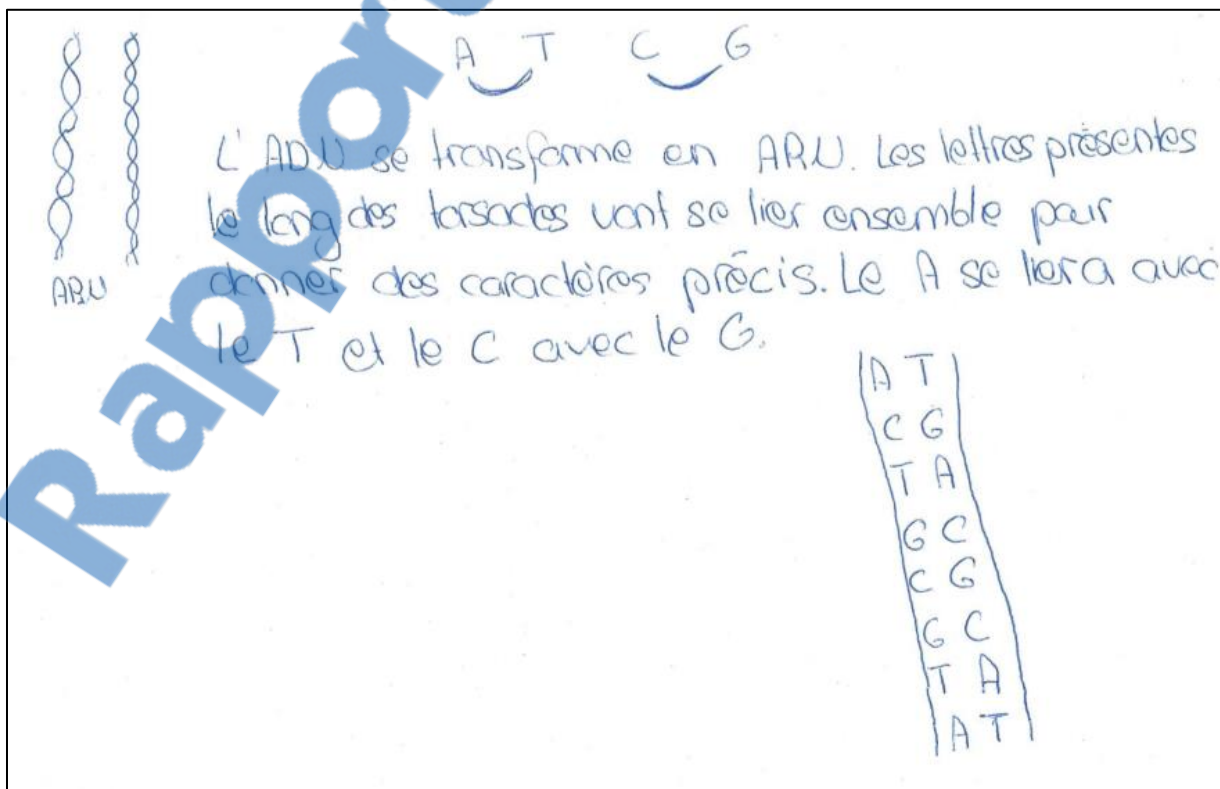 A T C G
L'ADN se transforme en ARN. Les lettres présentes
le long des torsades vont se lier ensemble pour
donner des caractères précis. Le A se liera avec
le T et le C avec le G.
ARN
A T
C G
T A
G C
C G
G C
T A
A T
Rappor